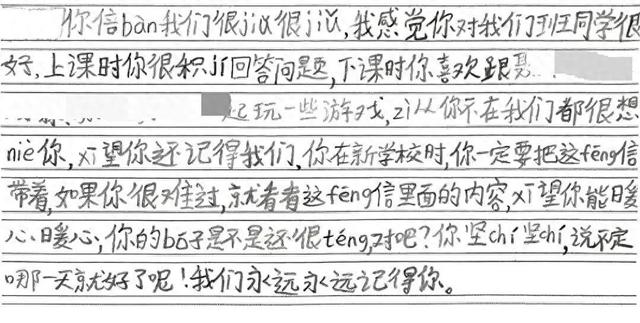 你信bàn我们很jiǔ很jiǔ,我感觉你对我们班同学很
好,上课时你很积jí回答问题,下课时你喜欢跟
起玩一些游戏,zì从你不在我们都很想
niè你,对望你还记得我们,你在新学校时,你一定要把这fēng信
带着,如果你很难过,就看看这fēng信里面的内容,对望你能暖
心暖心,你的bó子是不是还很téng,对吧?你坚chí坚chí,说不定
哪一天就好了呢!我们永远永远记得你。